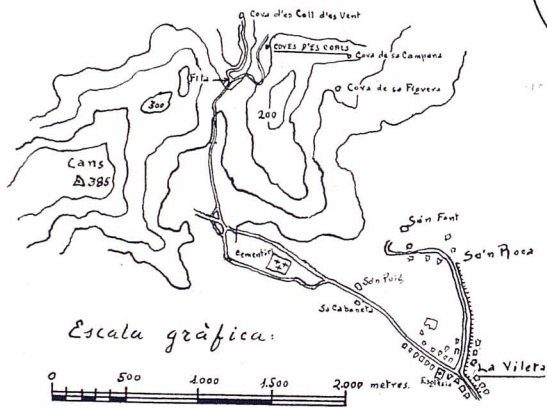 Cova d'es Coll d'es Vent
COVES D'ES CORLS
Cova de sa Campana
Fita
Cova de sa Figuera
300
200
Cans
385
Cementiri
Són Font
Só'n Roca
Són Puig
Sa Cabaneta
Església
La Vileta
Escala gràfica:
0 500 1.000 1.500 2.000 metres.